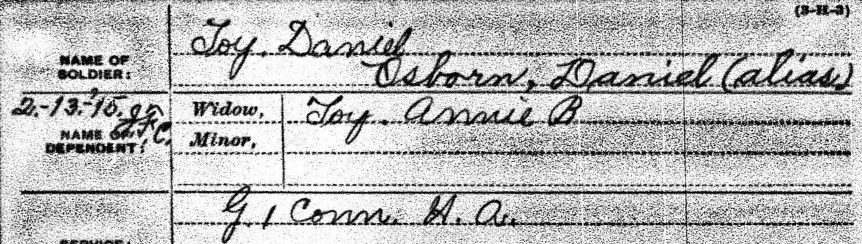 (3-H-3)
NAME OF SOLDIER: Toy, Daniel
Osborn, Daniel (alias)
2-13-'15.
NAME OF DEPENDENT: Widow, Toy, Annie B
Minor,
G, 1 Conn. H. A.
SERVICE: